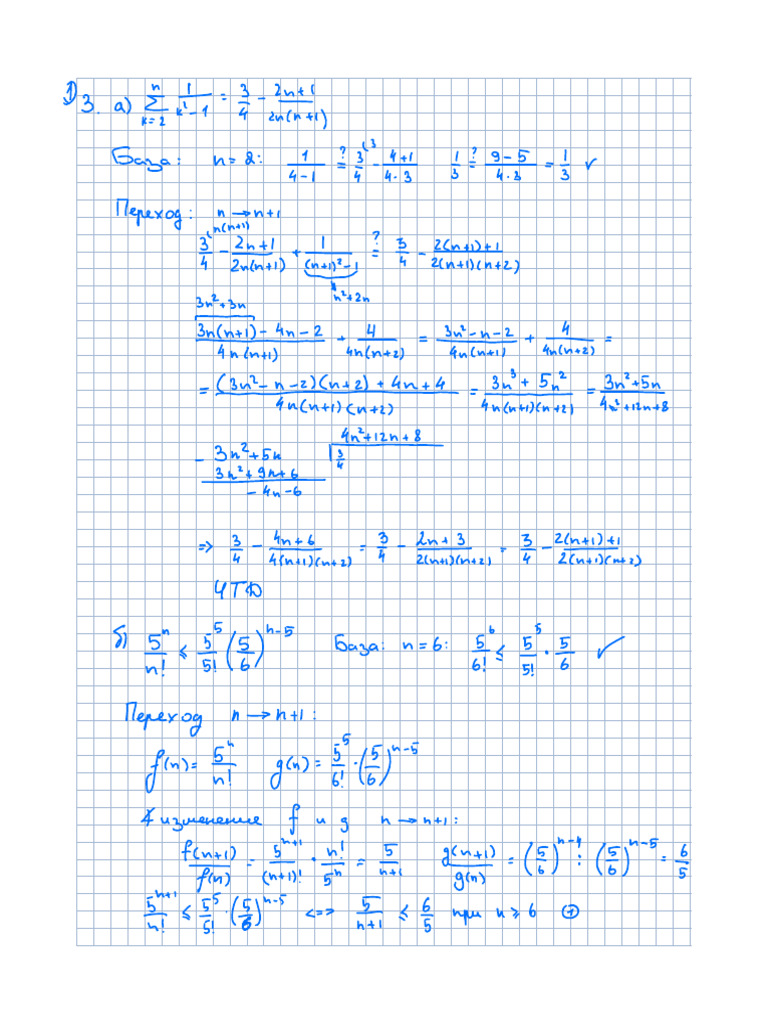 ① 3. а) \sum_{k=2}^{n} \frac{1}{k^2-1} = \frac{3}{4} - \frac{2n+1}{2n(n+1)}
База: n=2: \frac{1}{4-1} \overset{?}{=} \frac{3}{4}^{(3} - \frac{4+1}{4·3} \frac{1}{3} \overset{?}{=} \frac{9-5}{4·3} = \frac{1}{3} ✓
Переход: n → n+1
\frac{3}{4}^{(n(n+1)} - \frac{2n+1}{2n(n+1)} + \frac{1}{\underbrace{(n+1)^2-1}_{n^2+2n}} \overset{?}{=} \frac{3}{4} - \frac{2(n+1)+1}{2(n+1)(n+2)}
\frac{\overbrace{3n(n+1)}^{3n^2+3n} - 4n - 2}{4n(n+1)} + \frac{4}{4n(n+2)} = \frac{3n^2-n-2}{4n(n+1)} + \frac{4}{4n(n+2)} =
= \frac{(3n^2-n-2)(n+2)+4n+4}{4n(n+1)(n+2)} = \frac{3n^3+5n^2}{4n(n+1)(n+2)} = \frac{3n^2+5n}{4n^2+12n+8}
- 3n^2+5n | 4n^2+12n+8
3n^2+9n+6 | \frac{3}{4}
-4n-6
=> \frac{3}{4} - \frac{4n+6}{4(n+1)(n+2)} = \frac{3}{4} - \frac{2n+3}{2(n+1)(n+2)} = \frac{3}{4} - \frac{2(n+1)+1}{2(n+1)(n+2)}
ЧТД
б) \frac{5^n}{n!} ≤ \frac{5^5}{5!} (\frac{5}{6})^{n-5} База: n=6: \frac{5^6}{6!} ≤ \frac{5^5}{5!} · \frac{5}{6} ✓
Переход n → n+1:
f(n) = \frac{5^n}{n!} g(n) = \frac{5^5}{6!} · (\frac{5}{6})^{n-5}
изменение f и g n → n+1:
\frac{f(n+1)}{f(n)} = \frac{5^{n+1}}{(n+1)!} · \frac{n!}{5^n} = \frac{5}{n+1} \frac{g(n+1)}{g(n)} = (\frac{5}{6})^{n-4} : (\frac{5}{6})^{n-5} = \frac{6}{5}
\frac{5^{n+1}}{n!} ≤ \frac{5^5}{5!} · (\frac{5}{6})^{n-5} <=> \frac{5}{n+1} ≤ \frac{6}{5} при n ≥ 6 ⊕